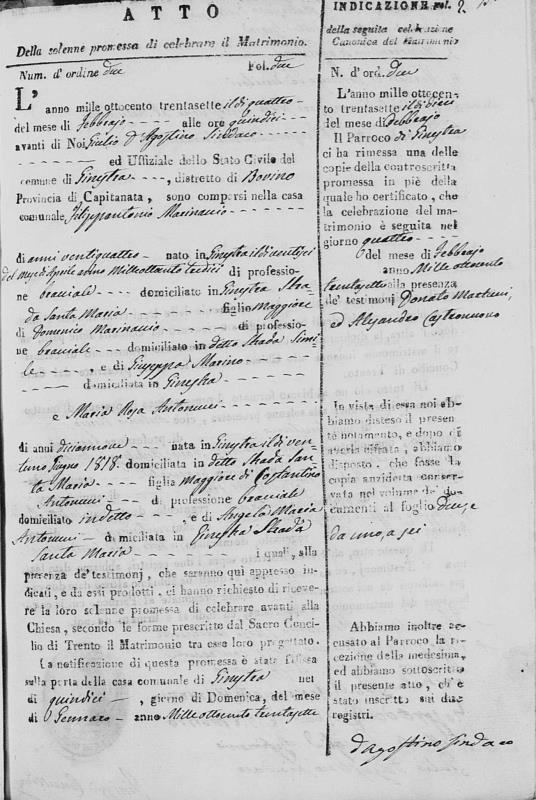 ATTO
Della solenne promessa di celebrare il Matrimonio.
Num. d'ordine due Fol. due
L'anno mille ottocento trentasette il dì quattro
del mese di Febbrajo alle ore quindici
avanti di Noi Giulio d'Agostino Sindaco
ed Uffiziale dello Stato Civile del
comune di Ginestra, distretto di Bovino
Provincia di Capitanata, sono comparsi nella casa
comunale Filippantonio Marinaccio
di anni ventiquattro nato in Ginestra il dì ventisei
del mese di Aprile anno Mille ottanto tredici di professio-
ne bracciale domiciliato in Ginestra Stra-
da Santa Maria figlio maggiore
di Domenico Marinaccio di professio-
ne bracciale domiciliato in detto Strada Simi-
le, e di Giuseppa Marino
domiciliata in Ginestra
e Maria Rosa Antonucci
di anni diciannove nata in Ginestra il dì ven-
tuno Giugno 1818. domiciliata in detto Strada San-
ta Maria figlia maggiore di Costantino
Antonucci di professione bracciale
domiciliato in detto, e di Angela Maria
Antonucci domiciliata in Ginestra Strada
Santa Maria i quali, alla
presenza de' testimonj, che saranno qui appresso in-
dicati, e da essi prodotti, ci hanno richiesto di riceve-
re la loro solenne promessa di celebrare avanti alla
Chiesa, secondo le forme prescritte dal Sacro Conci-
lio di Trento il Matrimonio tra esse loro progettato.
La notificazione di questa promessa è stata affissa
sulla porta della casa comunale di Ginestra nel
dì quindici, giorno di Domenica, del mese
di Gennaro anno Mille ottocento trentasette
INDICAZIONE Fol. 2
della seguita celebrazione
Canonica del Matrimonio
N. d'ord. due
L'anno mille ottocen-
to trentasette il dì dieci
del mese di Febbrajo
Il Parroco di Ginestra
ci ha rimessa una delle
copie della controscritta
promessa in piè della
quale ho certificato, che
la celebrazione del ma-
trimonio è seguita nel
giorno quattro
del mese di Febbrajo
anno Mille ottocento
trentasette alla presenza
de' testimonj Donato Martucci,
ed Alejandro
In vista di essa noi ab-
biamo disteso il presen-
te notamento, e dopo di
averla cifrata, abbiamo
disposto, che fosse la
copia anzidetta conser-
vata nel volume de' do-
cumenti al foglio due, e
da uno, a sei
Abbiamo inoltre ac-
cusato al Parroco la ri-
cezione della medesima,
ed abbiamo sottoscritto
il presente atto, ch'è
stato inscritto sui due
registri.
d'Agostino Sindaco